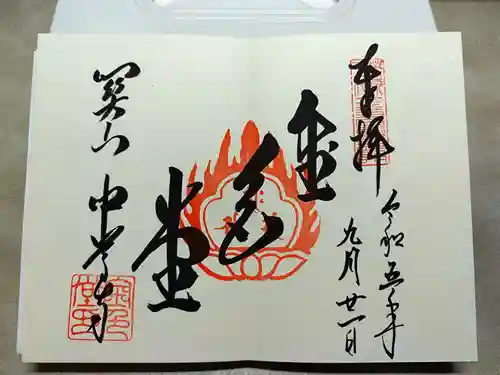 奉拝
令和五年
九月廿一日
金色堂
関山 中尊寺